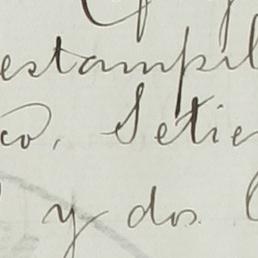 estampil
co, Setie
y dos